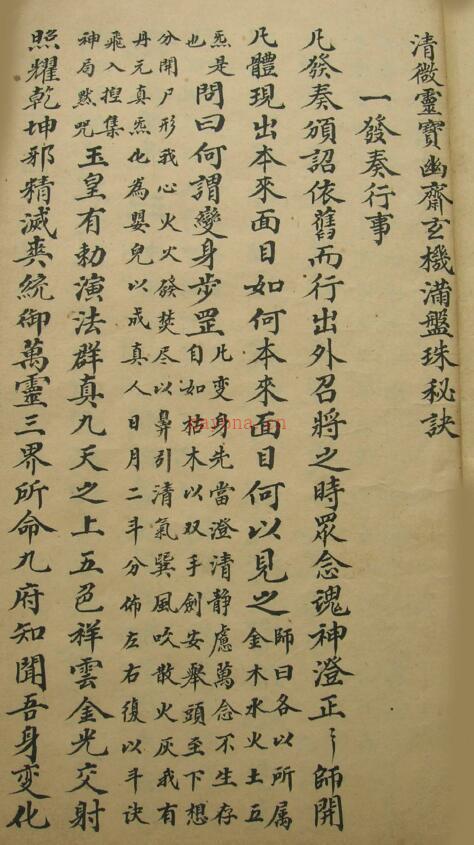 清微靈寶幽齋玄機滿盤珠秘訣
一發奏行事
凡發奏頒詔依舊而行出外召將之時眾念魂神澄正〻師開
凡體現出本來面目如何本來面目何以見之
師曰各以所属
金木水火土五
炁是
也
問曰何謂變身步罡
凡变身先當澄清静慮萬念不生存
自如枯木以双手劍安舉頭至下想
分開尸形我心火火發焚尽以鼻引清氣巽風吹散火灰我有
丹元真炁化為嬰兒以成真人日月二斗分佈左右復以斗诀
飛入揑集
神局黙咒
玉皇有勅演法群真九天之上五色祥雲金光交射
照耀乾坤邪精滅爽統御萬靈三界所命九府知聞吾身變化